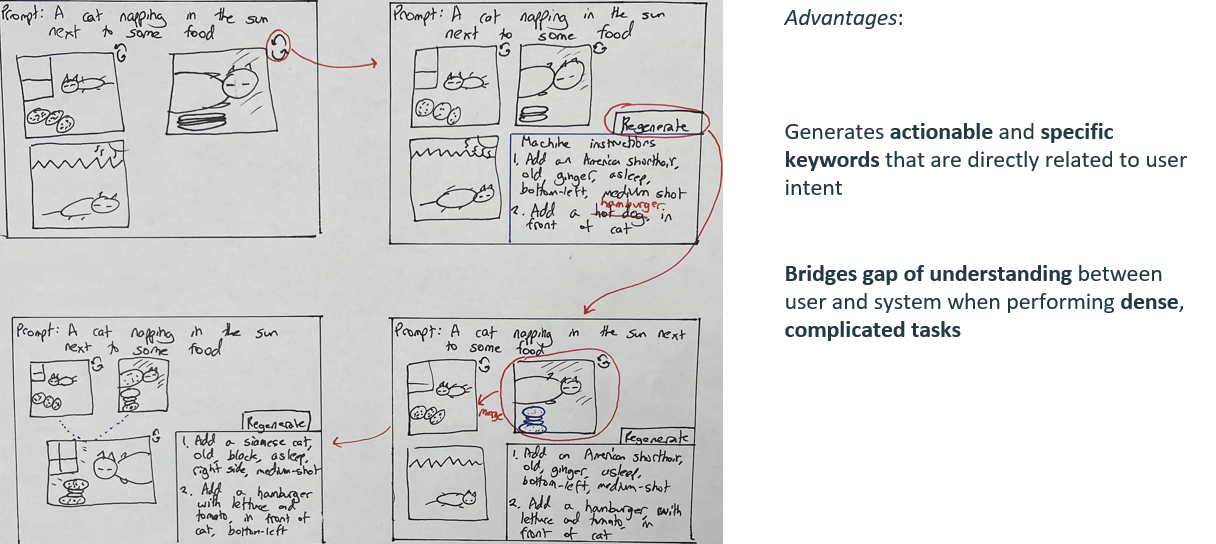 Prompt: A cat napping in the sun
next to some food
Prompt: A cat napping in the sun
next to some food
Regenerate
Machine instructions
1. Add an America shorthair,
old, ginger, asleep,
bottom-left, medium shot
hamburger
2. Add a hot dog, in
front of cat
Prompt: A cat napping in the sun
next to some food
Regenerate
1. Add a siamese cat,
old black, asleep,
right side, medium-shot
2. Add a hamburger
with lettuce and
tomato, in front of
cat, bottom-left
Prompt: A cat napping in the sun next
to some food
merge
Regenerate
1. Add an American shorthair,
old, ginger, asleep,
bottom-left, medium-shot
2. Add a hamburger with
lettuce and tomato, in
front of cat
Advantages:
Generates actionable and specific
keywords that are directly related to user
intent
Bridges gap of understanding between
user and system when performing dense,
complicated tasks